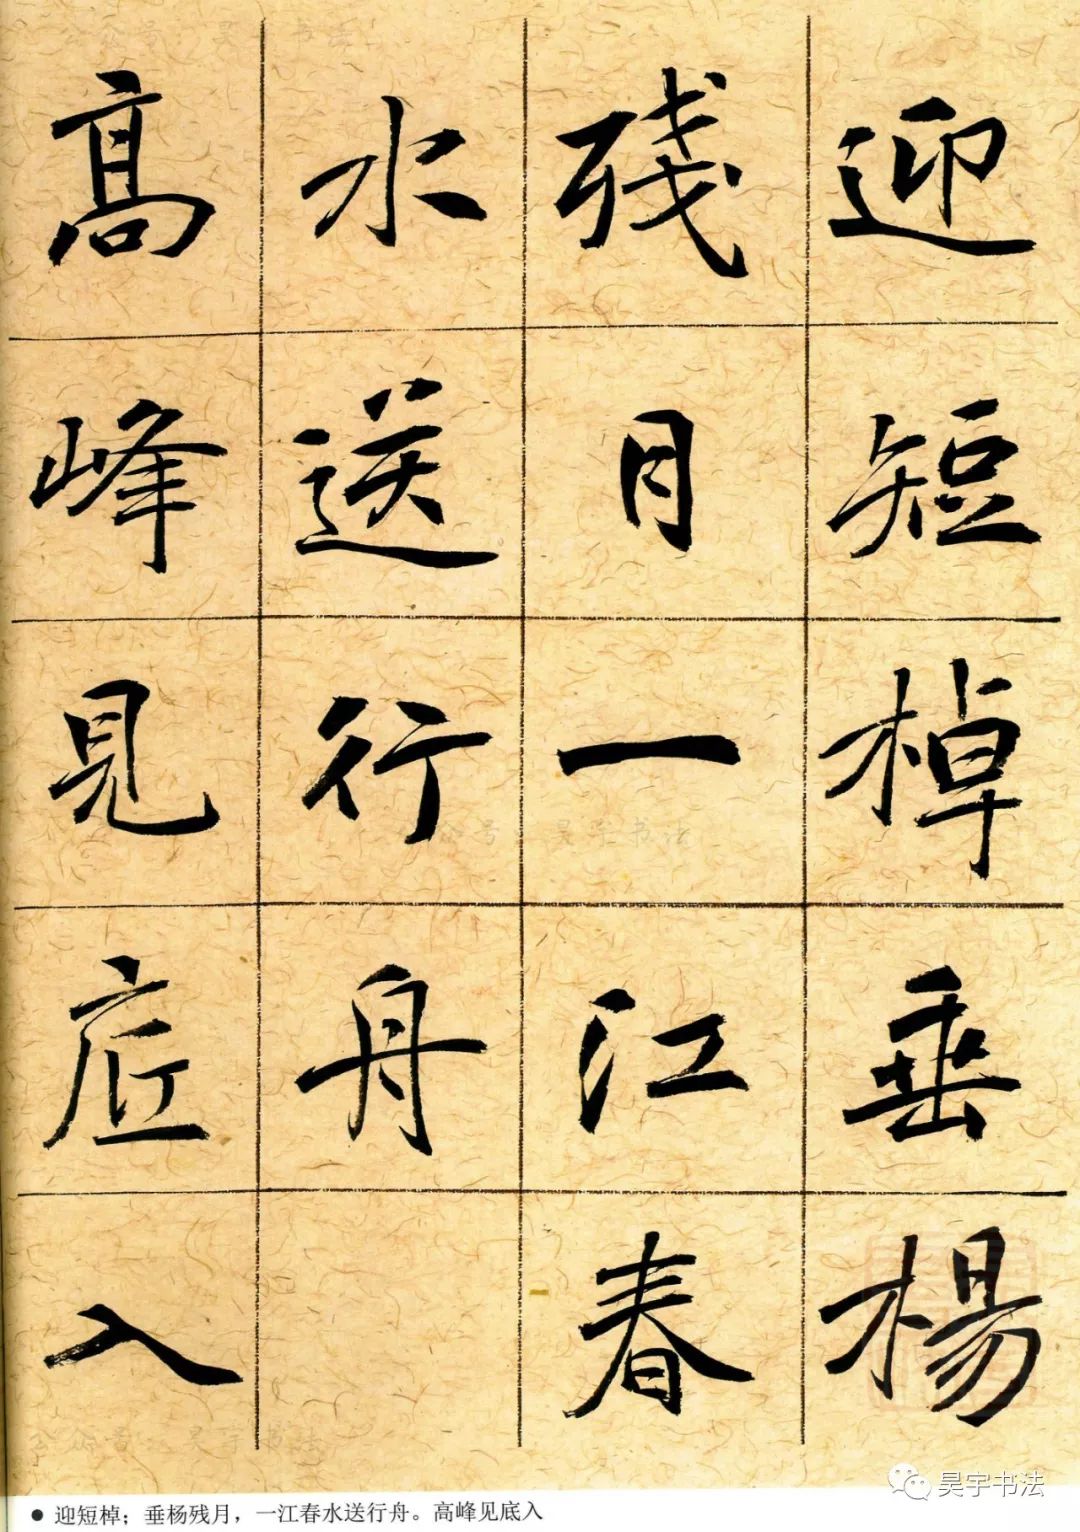 迎短棹垂楊
殘月一江春
水送行舟
高峰見底入
● 迎短棹；垂杨残月，一江春水送行舟。高峰见底入
昊宇书法